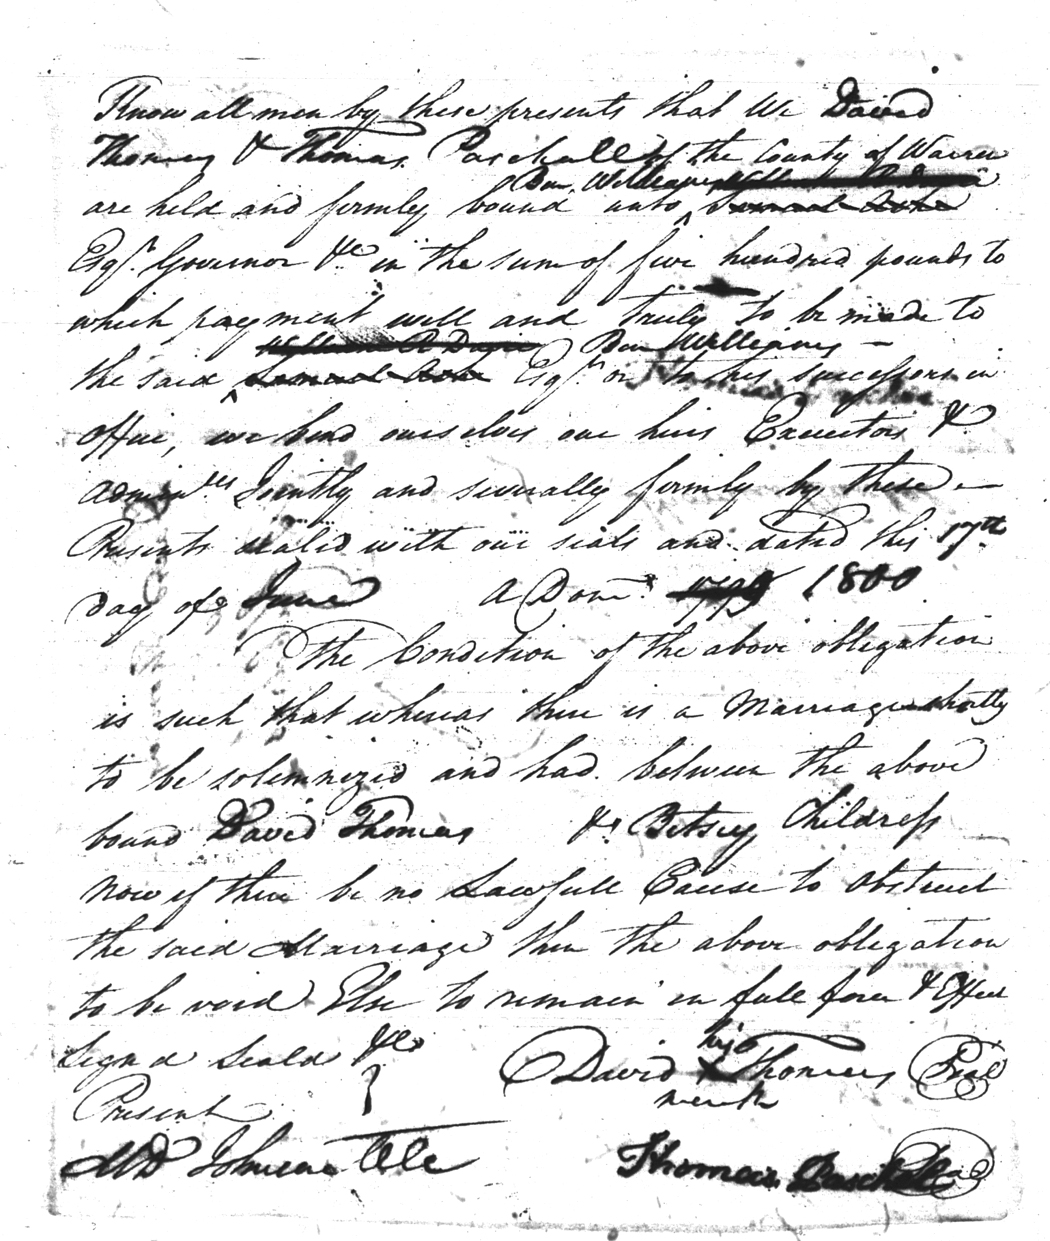 Know all men by these presents that We David
Thomas & Thomas Paschall of the County of Warren
Ben. Williams
are held and firmly bound unto Samuel Ashe
Esqr. Governor &c in the sum of five hundred pounds to
which payment well and truly to be made to
William R Davie Ben Williams
the said Samuel Ashe Esqr. or to his successors in
office, we bind ourselves our heirs Executors &
Admin Jointly and severally firmly by these
Presents sealed with our seals and dated this 17th
day of June A Dom. 1799 1800
The Condition of the above obligation
is such that whereas there is a Marriage shortly
to be solemnized and had between the above
bound David Thomas & Betsey Childress
Now if there be no Lawfull Cause to obstruct
the said Marriage then the above obligation
to be void Else to remain in full force & Effect
Signd Seald &c his
David X Thomas Seal
mark
Present
MD Johnson Thomas Paschall Seal